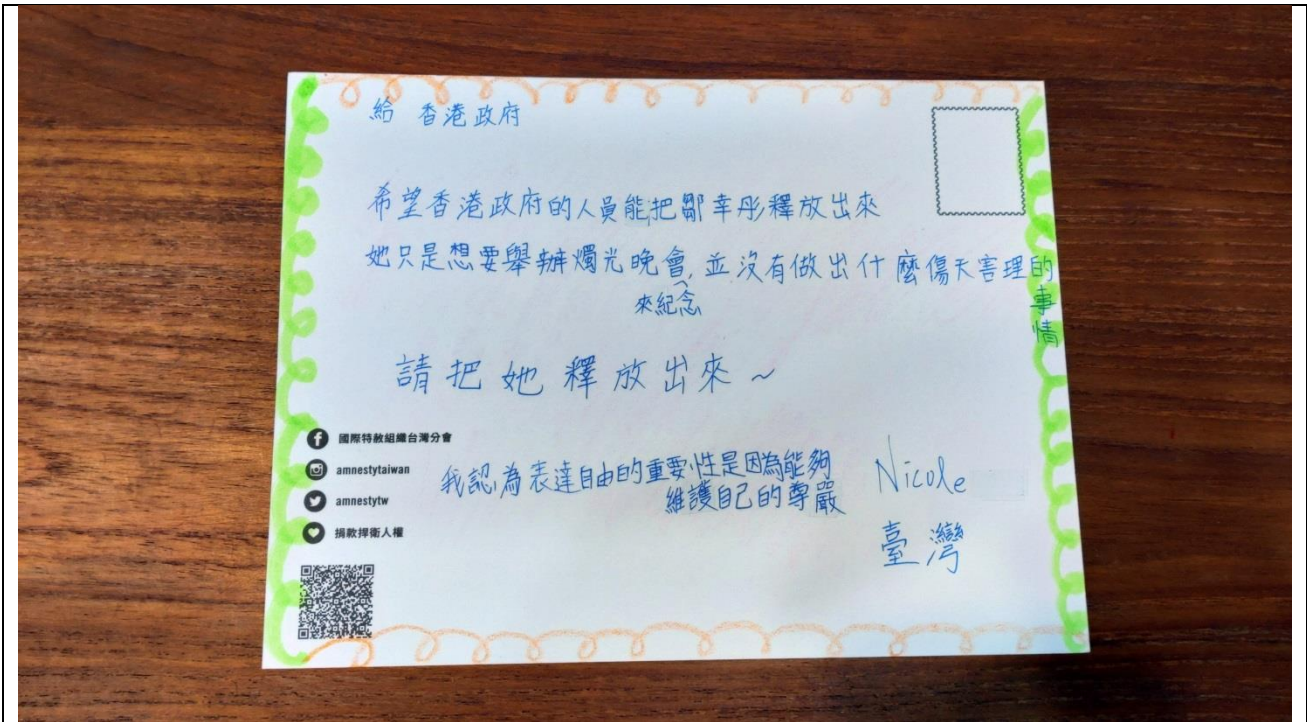 給 香港政府
希望香港政府的人員能把鄒幸彤釋放出來
她只是想要舉辦燭光晚會,並沒有做出什麼傷天害理的事情
來紀念
請把她釋放出來~
國際特赦組織台灣分會
amnestytaiwan
amnestytw
捐款捍衛人權
我認為表達自由的重要性是因為能夠
維護自己的尊嚴
Nicole
臺灣